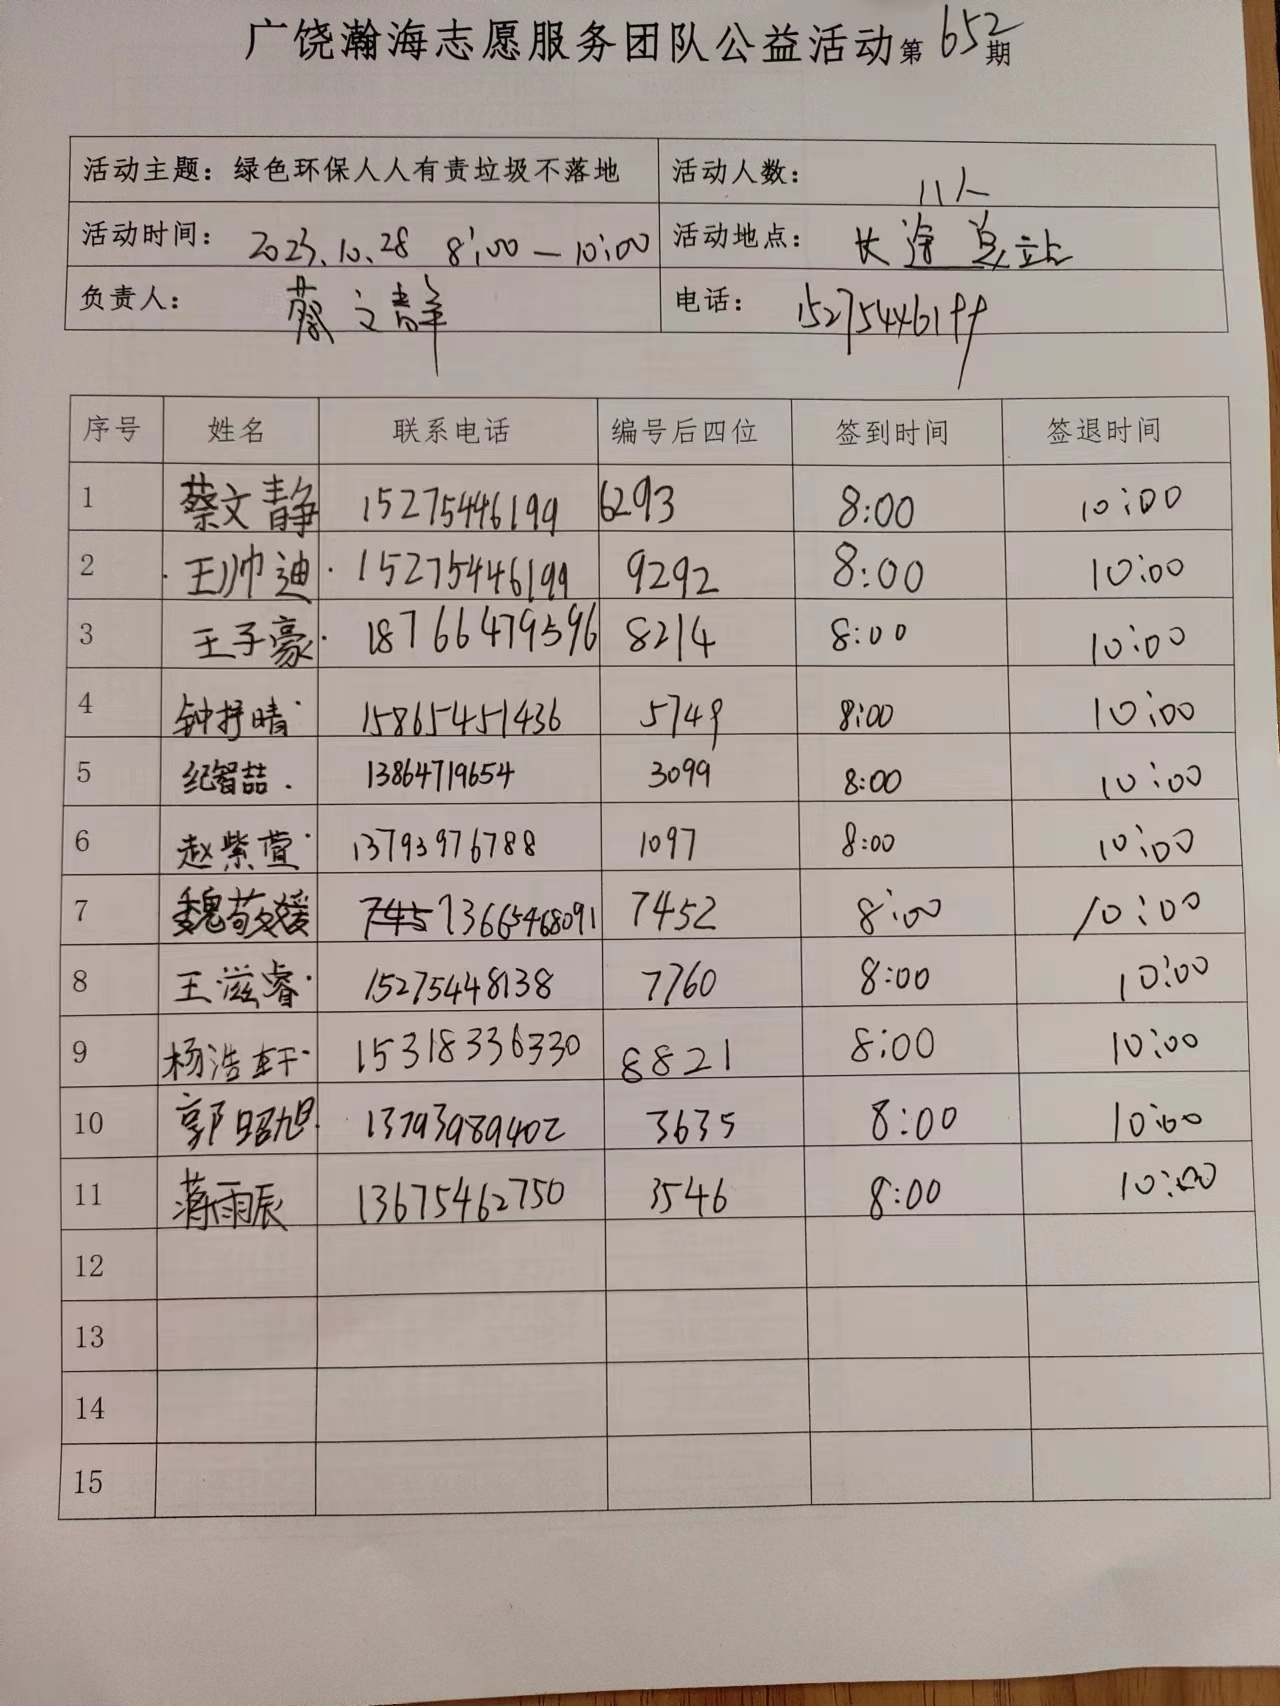 广饶瀚海志愿服务团队公益活动第652期
活动主题：绿色环保人人有责垃圾不落地 活动人数： 11人
活动时间： 2023.10.28 8:00—10:00 活动地点： 长途总站
负责人： 蔡文静 电话： 15275446199
序号 姓名 联系电话 编号后四位 签到时间 签退时间
1 蔡文静 15275446199 6293 8:00 10:00
2 王帅迪 15275446199 9292 8:00 10:00
3 王子豪 18766479596 8214 8:00 10:00
4 钟抒晴 15865451436 5749 8:00 10:00
5 纪智喆 13864719654 3099 8:00 10:00
6 赵紫萱 13793976788 1097 8:00 10:00
7 魏苟媛 13665468091 7452 8:00 10:00
8 王滋睿 15275448138 7760 8:00 10:00
9 杨浩轩 15318336330 8821 8:00 10:00
10 郭昭旭 13793989402 3635 8:00 10:00
11 蒋雨辰 13675462750 3546 8:00 10:00
12
13
14
15